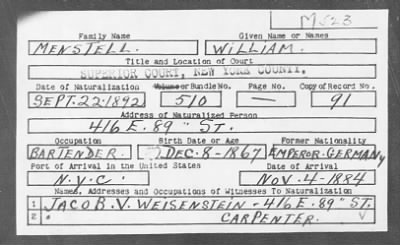 M523
Family Name Given Name or Names
MENSTELL. WILLIAM.
Title and Location of Court
SUPERIOR COURT, NEW YORK COUNTY.
Date of Naturalization Volume or Bundle No. Page No. Copy of Record No.
SEPT. 22-1892 510 — 91
Address of Naturalized Person
416 E. 89" ST.
Occupation Birth Date or Age Former Nationality
BARTENDER. DEC. 8-1867 EMPEROR-GERMANY
Port of Arrival in the United States Date of Arrival
N.Y.C. NOV. 4-1884
Names, Addresses and Occupations of Witnesses To Naturalization
1 JACOB. V. WEISENSTEIN-416 E. 89" ST.
2 CARPENTER.